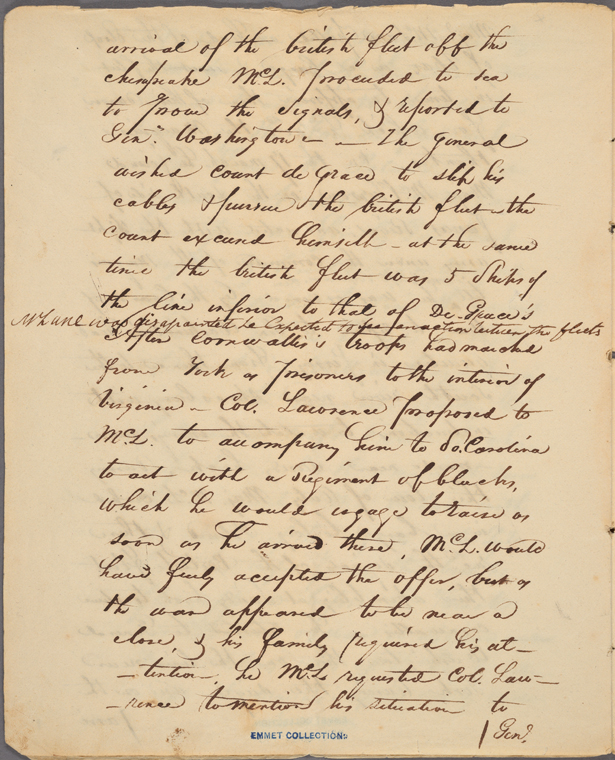 arrival of the british fleet off the
chesepeake McL. proceeded to sea
to prove the signals, & reported to
Genl. Washington - - The general
wished count de Grace to slip his
cables & pursue the british fleet - the
Count excused himself - at the same
time the british fleet was 5 Ships of
the line inferior to that of De Grace's
McLane was disapointed he Expected to see an action between the fleets
After Cornwallis's troops had marched
from York as prisoners to the interior of
Virginia - Col. Lawrence proposed to
McL. to accompany him to So. Carolina
to act with a Regiment of blacks,
which he would ingage to raise as
soon as he arrived there, McL. would
have freely accepted the offer, but as
the war appeared to be near a
close, & his family required his at-
-tention-, he McL requested Col. Law-
-rence to mention his situation to
Genl.
EMMET COLLECTION